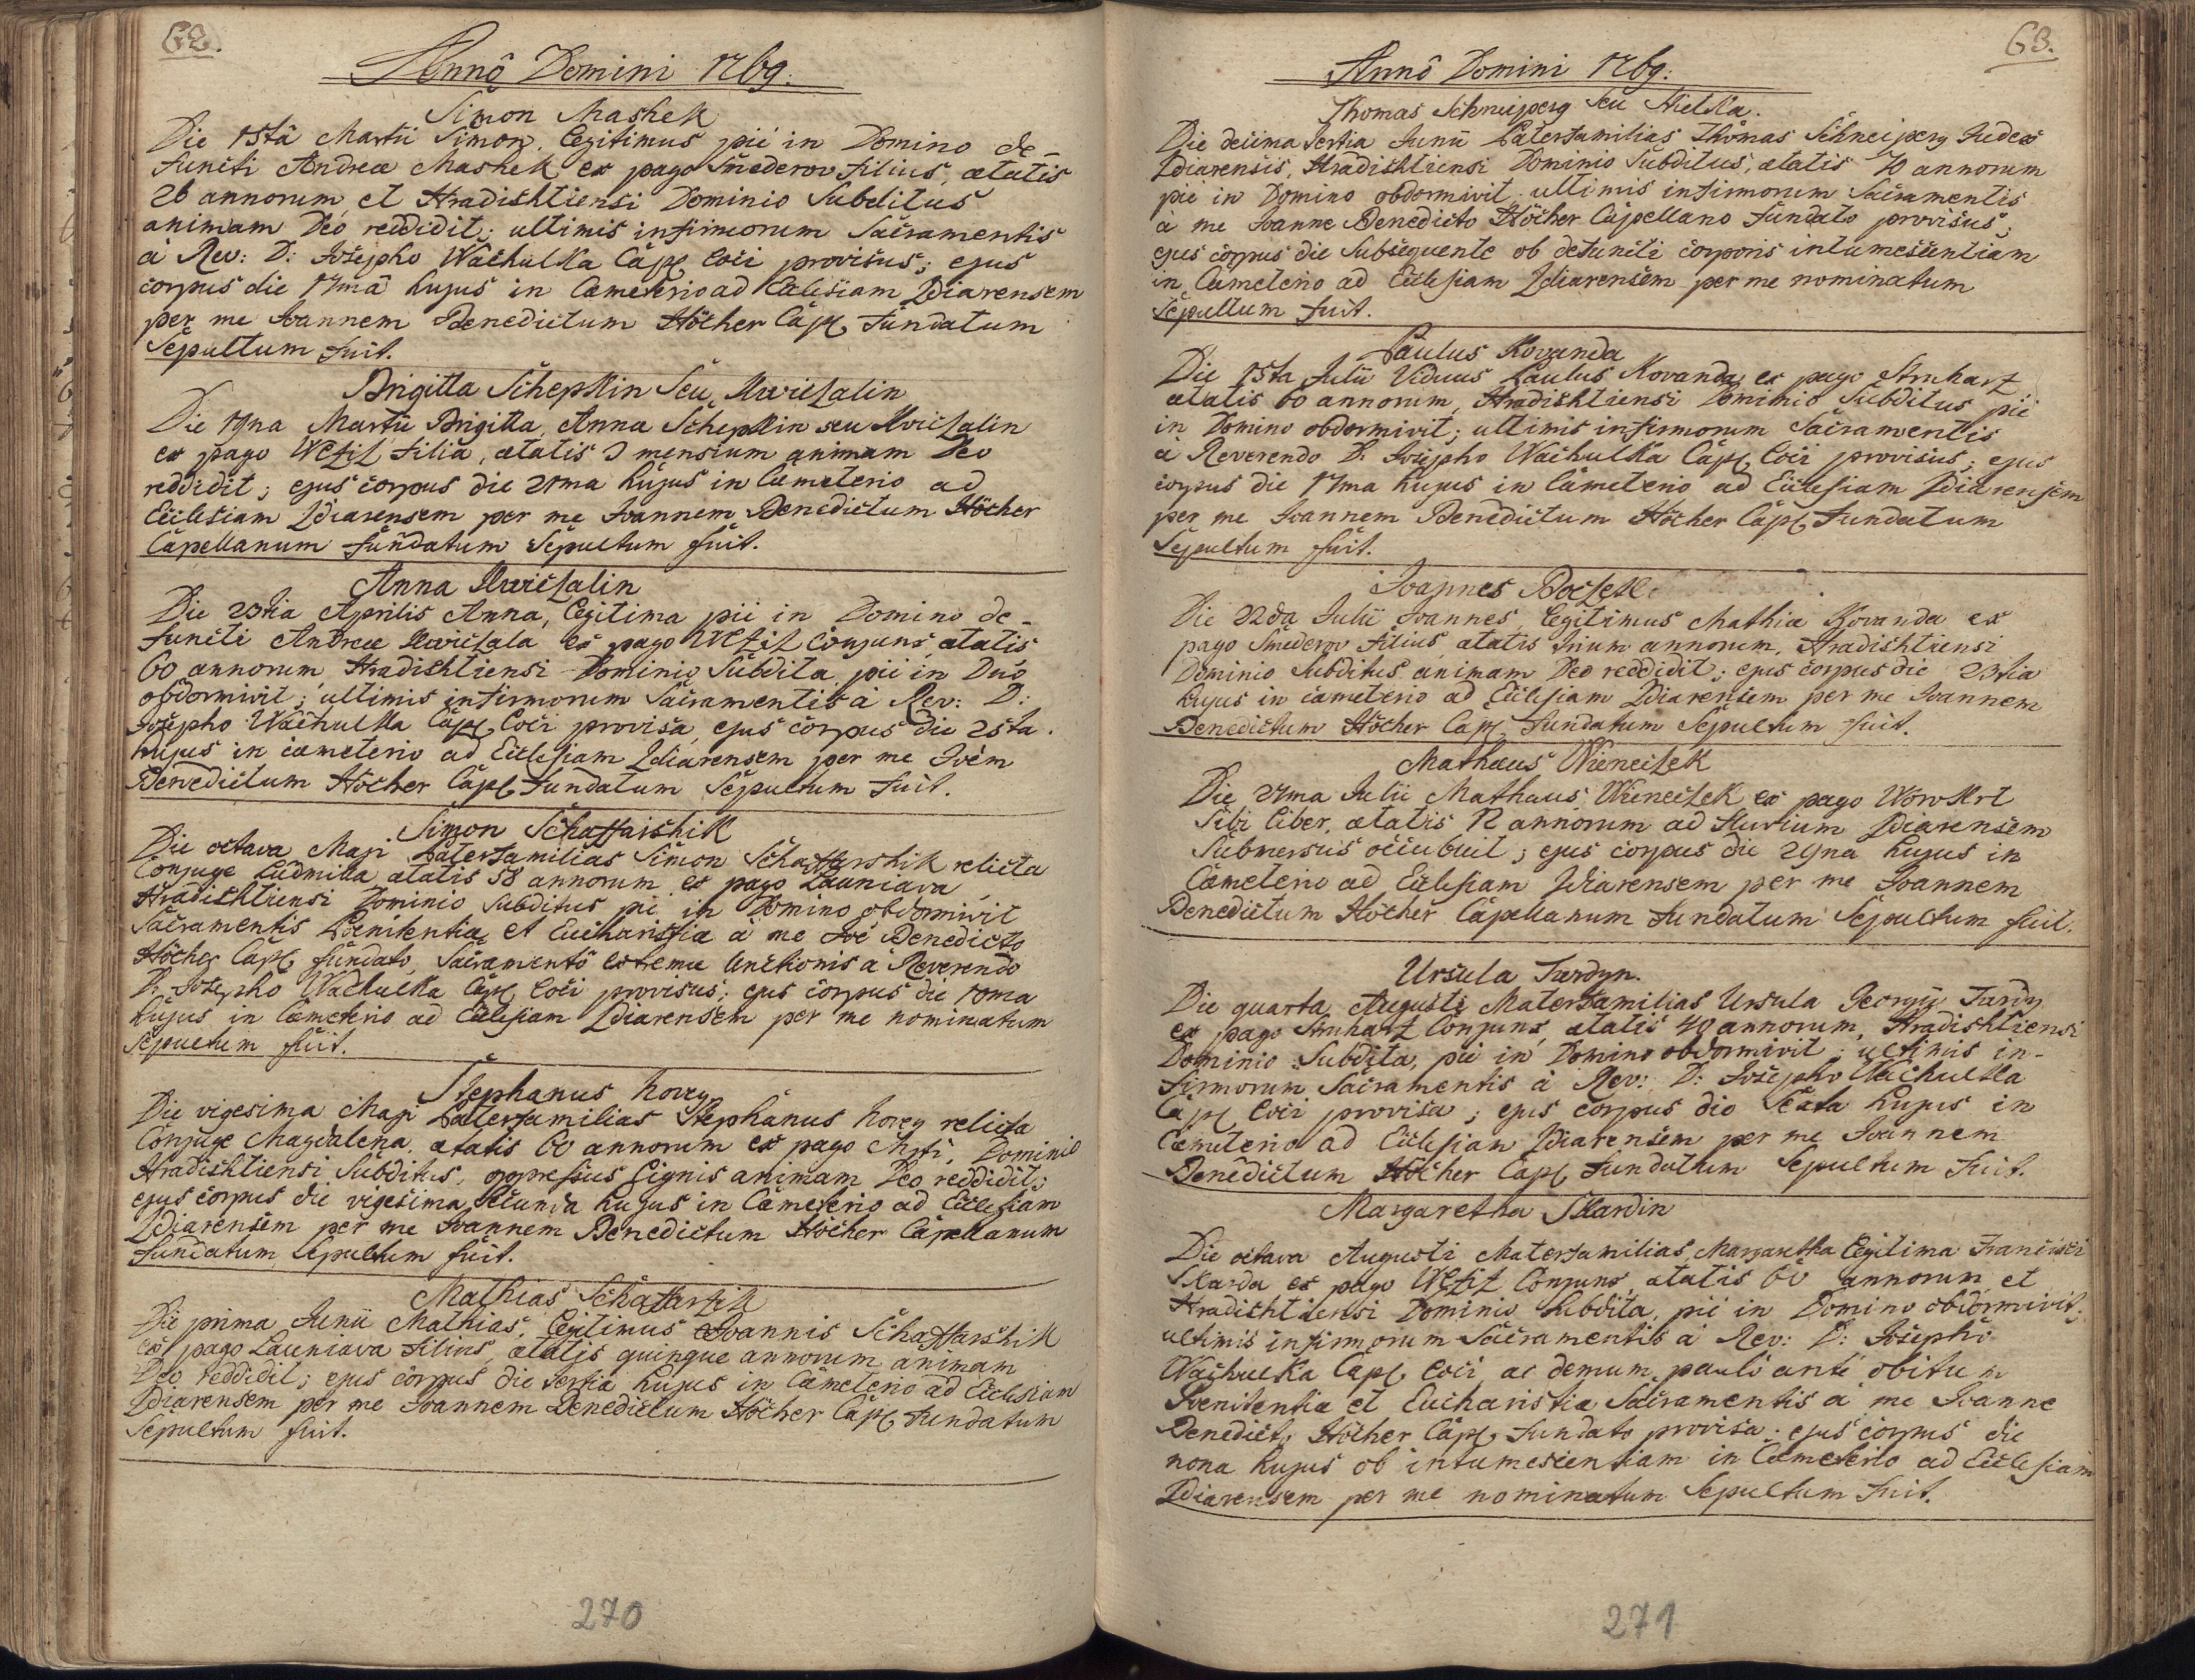 62.
Annô Domini 1769.
Simon Mashek
Die 15tâ Martii Simon, legitimus pié in Domino de-
functi Andreæ Mashek ex pago Smederov filius, ætatis
26 annorum et Hradishtiensi Dominio Subditus
animam Deo reddidit; ultimis infirmorum Sacramentis
à Rev: D: Josepho Wachulka Cap. loci provisus; ejus
corpus die 17mâ hujus in Cœmeterio ad Ecclesiam Zdiarensem
per me Joannem Benedictum Höcher Cap. fundatum
Sepultum fuit.
Brigitta Schepkin Seu Kwiczalin
Die 19na Martii Brigitta, Anna Schepkin seu Kwiczalin
ex pago Wczil filia, ætatis 3 mensium animam Deo
reddidit; ejus corpus die 21ma hujus in Cœmeterio ad
Ecclesiam Zdiarensem per me Joannem Benedictum Höcher
Capellanum fundatum Sepultum fuit.
Anna Kwiczalin
Die 23tia Aprilis Anna, legitima pié in Domino de-
functi Andreæ Kwiczala ex pago Conjunx, ætatis
60 annorum, Hradishtiensi Dominio Subdita, pié in Dno
obdormivit; ultimis infirmorum Sacramentis à Rev: D:
Josepho Wachulka Cap. loci provisa, ejus corpus die 25ta
hujus in cœmeterio ad Ecclesiam Zdiarensem per me Joêm
Benedictum Höcher Cap. fundatum Sepultum fuit.
Simon Schaffarshik
Die octava Maji Paterfamilias Simon Schaffarshik relicta
Conjuge Ludmilla ætatis 58 annorum ex pago Launiava
Hradishtiensi Dominio Subditus pié in Domino obdormivit
Sacramentis Pœnitentiæ et Eucharistiæ à me Joê Benedicto
Höcher Cap. fundato, Sacramentô extremæ Unctionis à Reverendo
D: Josepho Wachulka Cap. loci provisus; ejus corpus die 10ma
hujus in Cœmeterio ad Ecclesiam Zdiarensem per me nominatum
Sepultum fuit.
Stephanus horey
Die vigesima Maji Paterfamilias Stephanus horey relicta
Conjuge Magdalena, ætatis 60 annorum ex pago Dominio
Hradishtiensi Subditus, oppressus lignis animam Deo reddidit;
ejus corpus die vigesima secunda hujus in Cœmeterio ad Ecclesiam
Zdiarensem per me Joannem Benedictum Höcher Capellanum
fundatum Sepultum fuit.
Mathias Schaffarzik
Die prima Junii Mathias, legitimus Joannis Schaffarshik
ex pago Launiava filius, ætatis quinque annorum animam
Deo reddidit; ejus corpus die tertia hujus in Cœmeterio ad Ecclesiam
Zdiarensem per me Joannem Benedictum Höcher Cap. fundatum
Sepultum fuit.
270
63.
Annô Domini 1769:
Thomas Schneiperg Seu Hielka.
Die decima tertia Junii Paterfamilias Thomas Schneiperg Judex
Zdiarensis, Hradishtiensi Dominio Subditus, ætatis 70 annorum
pié in Domino obdormivit ultimis infirmorum Sacramentis
à me Joanne Benedicto Höcher Capellano fundato provisus;
ejus corpus die Subsequente ob defuncti corporis intumescentiam
in Cœmeterio ad Ecclesiam Zdiarensem per me nominatum
Sepultum fuit.
Paulus Kovanda
Die 15ta Julii Viduus Paulus Kovanda ex pago
ætatis 60 annorum, Hradishtiensi Dominio Subditus pié
in Domino obdormivit; ultimis infirmorum Sacramentis
à Reverendo D: Josepho Wachulka Cap. loci provisus; ejus
corpus die 17ma hujus in Cœmeterio ad Ecclesiam Zdiarensem
per me Joannem Benedictum Höcher Cap. fundatum
Sepultum fuit.
Joannes Boczek
Die 22da Julii Joannes, legitimus Mathiæ Kovanda ex
pago Smederov filius, ætatis trium annorum, Hradishtiensi
Dominio Subditus animam Deo reddidit; ejus corpus die 23tia
hujus in cœmeterio ad Ecclesiam Zdiarensem per me Joannem
Benedictum Höcher Cap. fundatum Sepultum fuit.
Mathæus Wieneczek
Die 27ma Julii Mathæus Wieneczek ex pago Wowkrt
Sibi liber, ætatis 12 annorum ad fluvium Zdiarensem
Submersus occubuit; ejus corpus die 29na hujus in
Cœmeterio ad Ecclesiam Zdiarensem per me Joannem
Benedictum Höcher Capellanum fundatum Sepultum fuit.
Ursula Tardyn.
Die quarta Augusti Materfamilias Ursula Georgii Tardy
ex pago Conjunx, ætatis 40 annorum, Hradishtiensi
Dominio Subdita, pié in Domino obdormivit; ultimis in-
firmorum Sacramentis à Rev: D: Josepho Wachulka
Cap. loci provisa; ejus corpus die Sexta hujus in
Cœmeterio ad Ecclesiam Zdiarensem per me Joannem
Benedictum Höcher Cap. fundatum Sepultum fuit.
Margaretha Skardin
Die octava Augusti Materfamilias Margaretha legitima Francisci
Skarda ex pago Conjunx, ætatis 60 annorum et
Hradishtiensi Dominio Subdita, pié in Domino obdormivit;
ultimis infirmorum Sacramentis à Rev: D: Josephô
Wachulka Cap. loci ac demum paulô ante obitum
Pœnitentiæ et Eucharistiæ Sacramentis à me Joanne
Benedicto Höcher Cap. fundato provisa; ejus corpus die
nona hujus ob intumescentiam in Cœmeterio ad Ecclesiam
Zdiarensem per me nominatum Sepultum fuit.
271